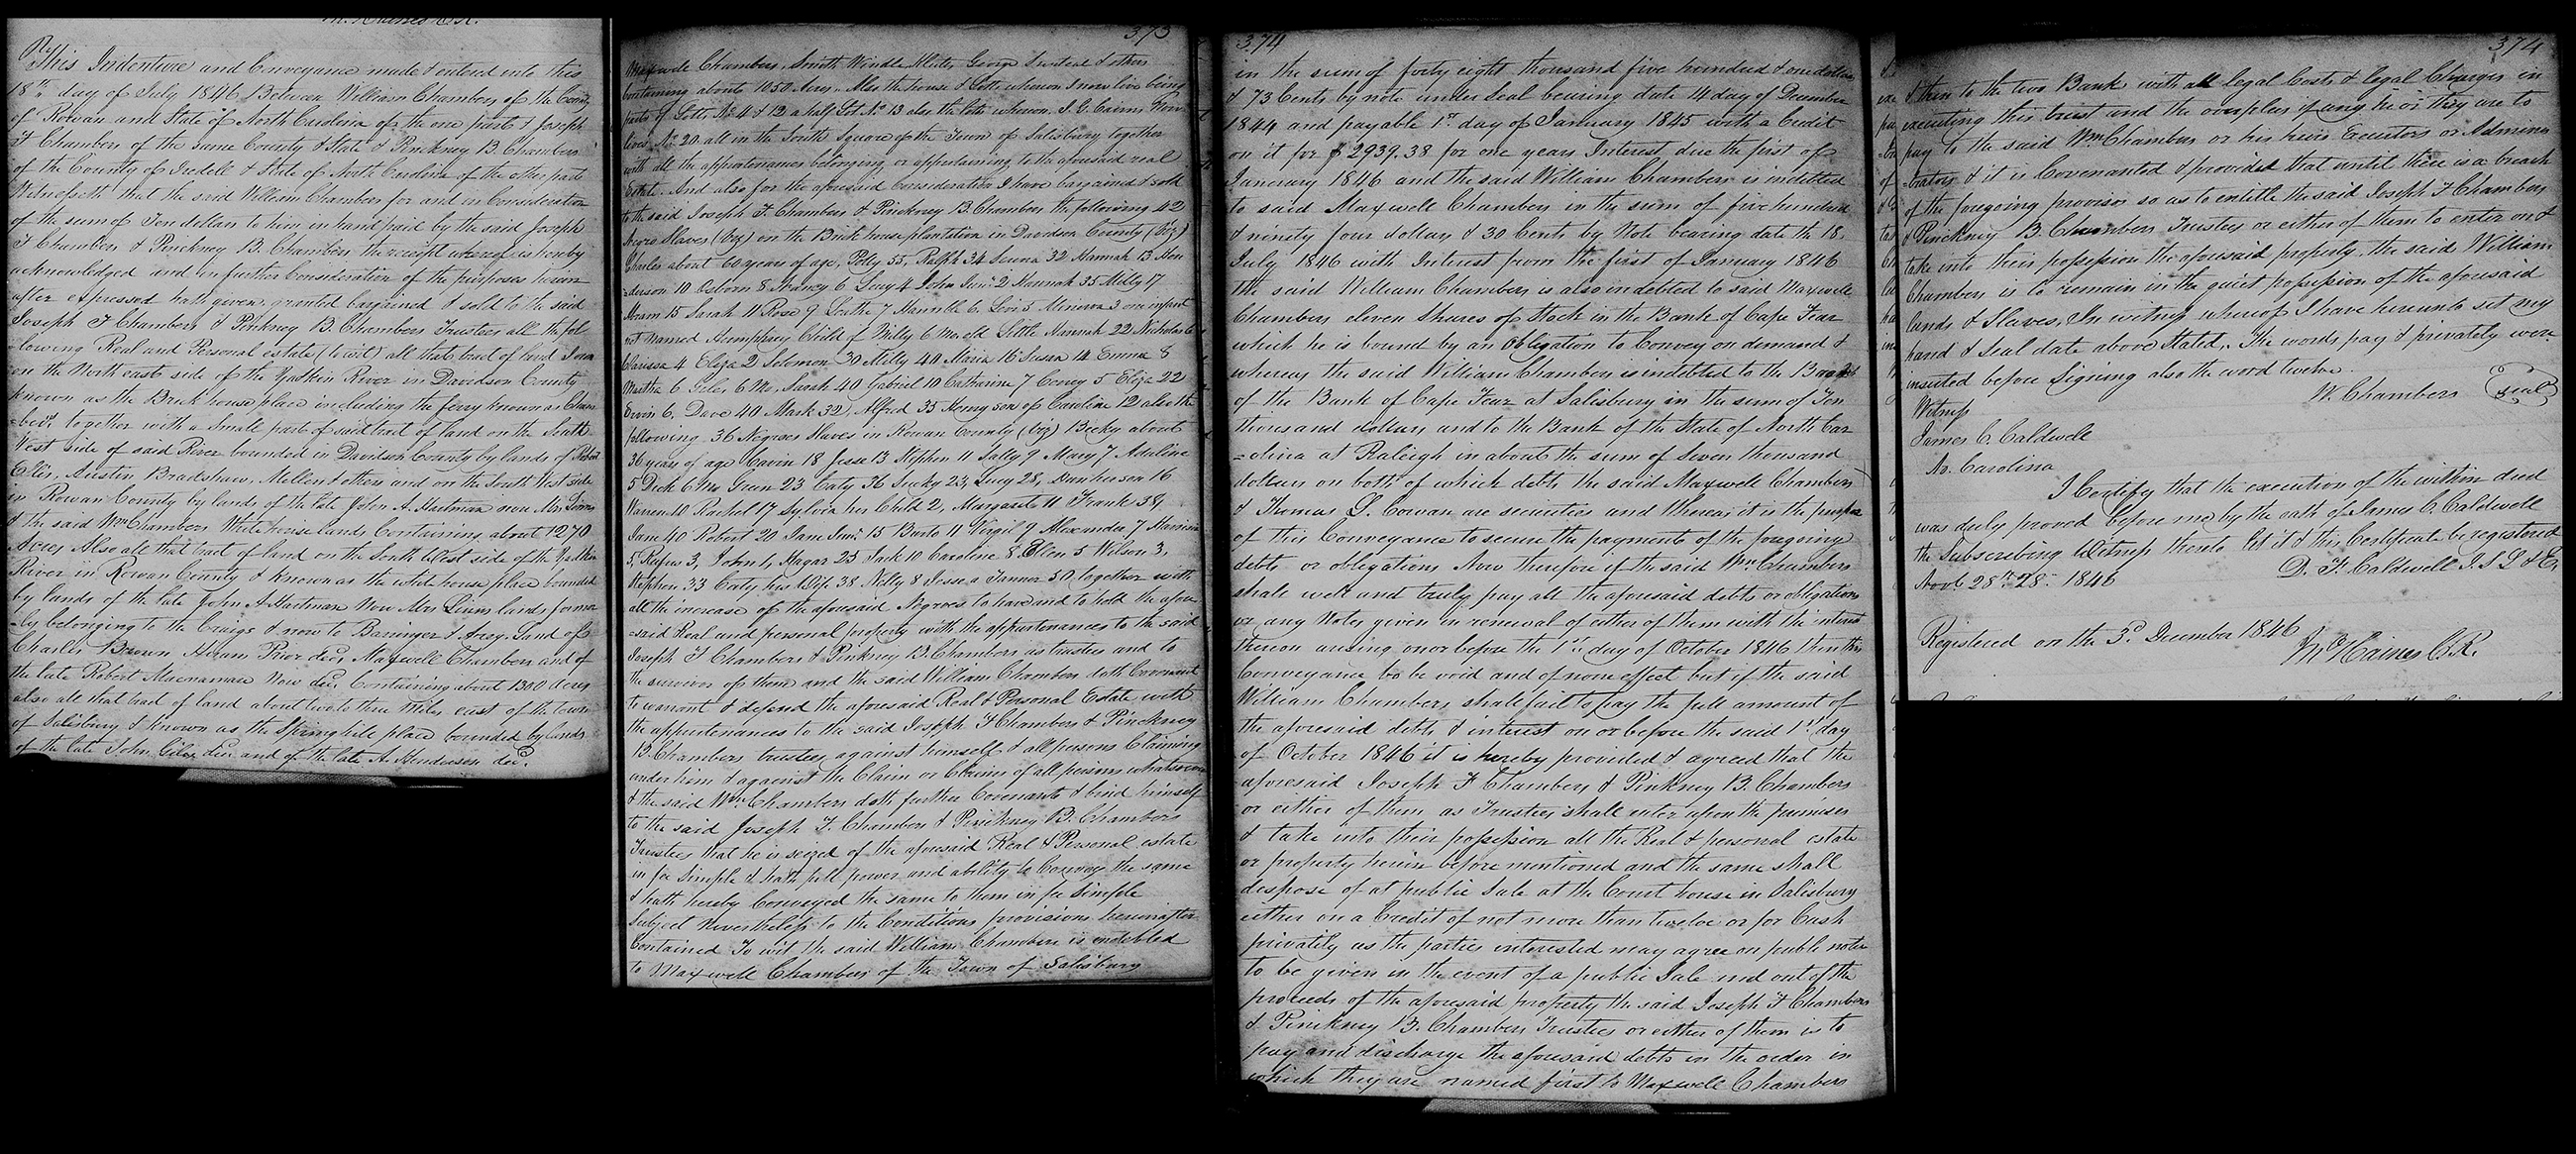 M. Haines C.R.
This Indenture and Conveyance made & entered into this
18th day of July 1846 Between William Chambers of the County
of Rowan and State of North Carolina of the one part & Joseph
F Chambers of the Same County & State & Pinckney B. Chambers
of the County of Iredell & State of North Carolina of the other part
Witnesseth that the said William Chambers for and in Consideration
of the sum of Ten dollars to him in hand paid by the said Joseph
F Chambers & Pinckney B. Chambers the receipt whereof is hereby
acknowledged and in further Consideration of the purposes herein
after expressed hath given, granted bargained & sold to the said
Joseph F Chambers & Pinkney B. Chambers Trustees all the fol
-lowing Real and Personal estate (to wit) all that tract of land I own
on the North east side of the Yadkin River in Davidson County
known as the Brick house place including the ferry known as Cham
-bers, together with a Small part of said tract of land on the South
West side of said River bounded in Davidson County by lands of Robert
Ellis, Austin, Bradshaw, Miller & others and on the South West side
in Rowan County by lands of the late John A. Hartman now Mrs
& the said Wm Chambers White house lands Containing about 1270
Acres Also all that tract of land on the South West side of the Yadkin
River in Rowan County & known as the white house place bounded
by lands of the late John A Hartman Now Mrs lands former
-ly belonging to the Craige & now to Barringer & Arey. Land of
Charles Brown Hiram Prior decd Maxwell Chambers and of
the late Robert Macnamara Now decd Containing about 1300 Acres
also all that tract of land about two to three Miles east of the town
of Salisbury & known as the Spring hill place bounded by lands
of the late John Giles decd and of the late A. Henderson decd
373
Maxwell Chambers, Smith George & others
containing about 1050 Acres. Also the house & Lotts whereon I now live being
parts of Lotts No 4 & 12 a half Lot No 13 also the lotts whereon J. G. Cairns Now
lives No 20 all in the South Square of the Town of Salisbury together
with all the appurtenances belonging or appertaining to the aforesaid real
Estate. And also for the aforesaid Consideration I have bargained & sold
to the said Joseph F. Chambers & Pinckney B. Chambers the following 42
Negro Slaves (Viz) on the Brick house plantation in Davidson County (Viz)
Charles about 60 years of age, Polly 55, Ralph 34 32 Hannah 13 Hen
-derson 10 Osborn 8 Nancy 6 Lucy 4 John Junr 2 Hannah 35 Milly 17
Hiram 15 Sarah 11 Rose 9 7 Hannible 6 Levi 5 Minerva 3 one infant
not named Humphrey Child of Milly 6 Mo. old Little Hannah 22 Nicholas 6
Clarissa 4 Eliza 2 Solomon 30 Milly 40 Maria 16 Susan 14 Emma 8
Martha 6 Giles 6 Mo, Sarah 40 Gabriel 10 Catharine 7 5 Eliza 22
Ervin 6, Dave 40 Mark 32, Alfred 35 Henry son of Caroline 12 also the
following 36 Negroes Slaves in Rowan County (Viz) Becky about
36 years of age Cavin 18 Jesse 13 Stephen 11 Sally 9 Mary 7 Adeline
5 Dick 6 Mo Green 23 Caty 36 Sucky 23, Lucy 28, 16
Warren 10 Rachel 17 Sylvia her Child 2, Margaret 11 Frank 38,
Jane 40 Robert 20 Jane Junr 15 11 Virgil 9 Alexander 7 Harrison
5, Rufus 3, John 1, Hagar 25 Jack 10 Caroline 8 Ellen 5 Wilson 3,
Stephen 33 Caty his Wife 38 Nelly 8 Jesse a Tanner 50, together with
all the increase of the aforesaid Negroes to have and to hold the afore
-said Real and personal property with the appurtenances to the said
Joseph F Chambers & Pinkney B. Chambers as trustees and to
the survivor of them and the said William Chambers doth Covenant
to warrant & defend the aforesaid Real & Personal Estate with
the appurtenances to the said Joseph F Chambers & Pinckney
B. Chambers trustees against himself & all persons Claiming
under him & against the Claim or Claims of all persons whatsoever
& the said Wm Chambers doth further Covenants & bind himself
to the said Joseph F. Chambers & Pinckney B. Chambers
Trustees that he is seized of the aforesaid Real & Personal estate
in fee Simple & hath full power and ability to Convey the same
& hath hereby Conveyed the same to them in fee Simple
Subject Nevertheless to the Conditions provisions hereinafter
Contained To wit the said William Chambers is indebted
to Maxwell Chambers of the Town of Salisbury
374
in the sum of forty eight thousand five hundred & one dollars
& 73 Cents by note under Seal bearing date 14 day of December
1844 and payable 1st day of January 1845 with a Credit
on it for $ 2939.38 for one years Interest due the first of
January 1846 and the said William Chambers is indebted
to said Maxwell Chambers in the sum of five hundred
& ninety four dollars & 30 Cents by Note bearing date the 18
July 1846 with Interest from the first of January 1846
the said William Chambers is also indebted to said Maxwell
Chambers eleven Shares of Stock in the Bank of Cape Fear
which he is bound by an Obligation to Convey on demand &
whereas the said William Chambers is indebted to the Branch
of the Bank of Cape Fear at Salisbury in the sum of Ten
thousand dollars and to the Bank of the State of North Car
-olina at Raleigh in about the sum of Seven thousand
dollars on both of which debts the said Maxwell Chambers
& Thomas L. Cowan are securities and Whereas it is the purpose
of this Conveyance to secure the payments of the foregoing
debts or obligations Now therefore if the said Wm Chambers
shall well and truly pay all the aforesaid debts or obligations
or any Notes given in renewal of either of them with the interest
thereon arising on or before the 1st day of October 1846 then this
Conveyance to be void and of none effect but if the said
William Chambers shall fail to pay the full amount of
the aforesaid debts & interest on or before the said 1st day
of October 1846 it is hereby provided & agreed that the
aforesaid Joseph F Chambers & Pinkney B. Chambers
or either of them as Trustees shall enter upon the premises
& take into their possession all the Real & personal estate
or property herein before mentioned and the same shall
dispose of at public Sale at the Court house in Salisbury
either on a Credit of not more than twelve or for Cash
privately as the parties interested may agree on public notice
to be given in the event of a public Sale and out of the
proceeds of the aforesaid property the said Joseph F Chambers
& Pinckney B. Chambers Trustees or either of them is to
pay and discharge the aforesaid debts in the order in
which they are named first to Maxwell Chambers
374
& then to the two Bank with all legal Costs & legal Charges in
executing this trust and the overplus if any he or they are to
pay to the said Wm Chambers or his heirs Executors or Adminis
-trators & it is Covenanted & provided that until there is a breach
of the foregoing provisos so as to entitle the said Joseph F Chambers
& Pinckney B. Chambers Trustees or either of them to enter on &
take into their possession the aforesaid property, the said William
Chambers is to remain in the quiet possession of the aforesaid
lands & Slaves, In witness whereof I have hereunto set my
hand & Seal date above Stated, The words pay & privately were
inserted before Signing also the word twelve.
W. Chambers (seal)
Witness
James C. Caldwell
No. Carolina
I Certify that the execution of the within deed
was duly proved before me by the oath of James C. Caldwell
the Subscribing Witness thereto let it & this Certificate be registered
Novb 28th 28th 1846 D. F. Caldwell J.S.L & E.
Registered on the 3d December 1846
M Haines C.R.